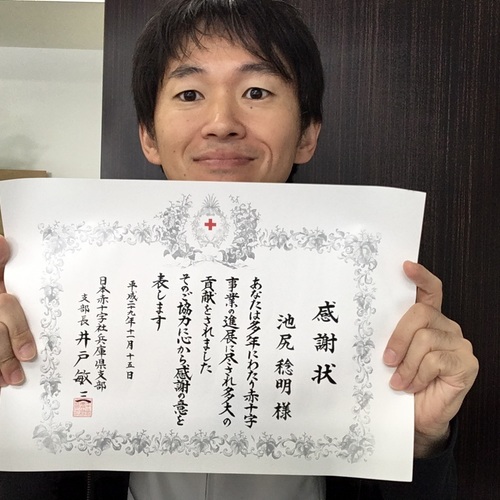 感謝状
池尻稔明様
あなたは多年にわたり赤十字
事業の進展に尽され多大の
貢献をされました
そのご協力に心から感謝の意を
表します
平成二十九年十一月十五日
日本赤十字社兵庫県支部
支部長 井戸敏三